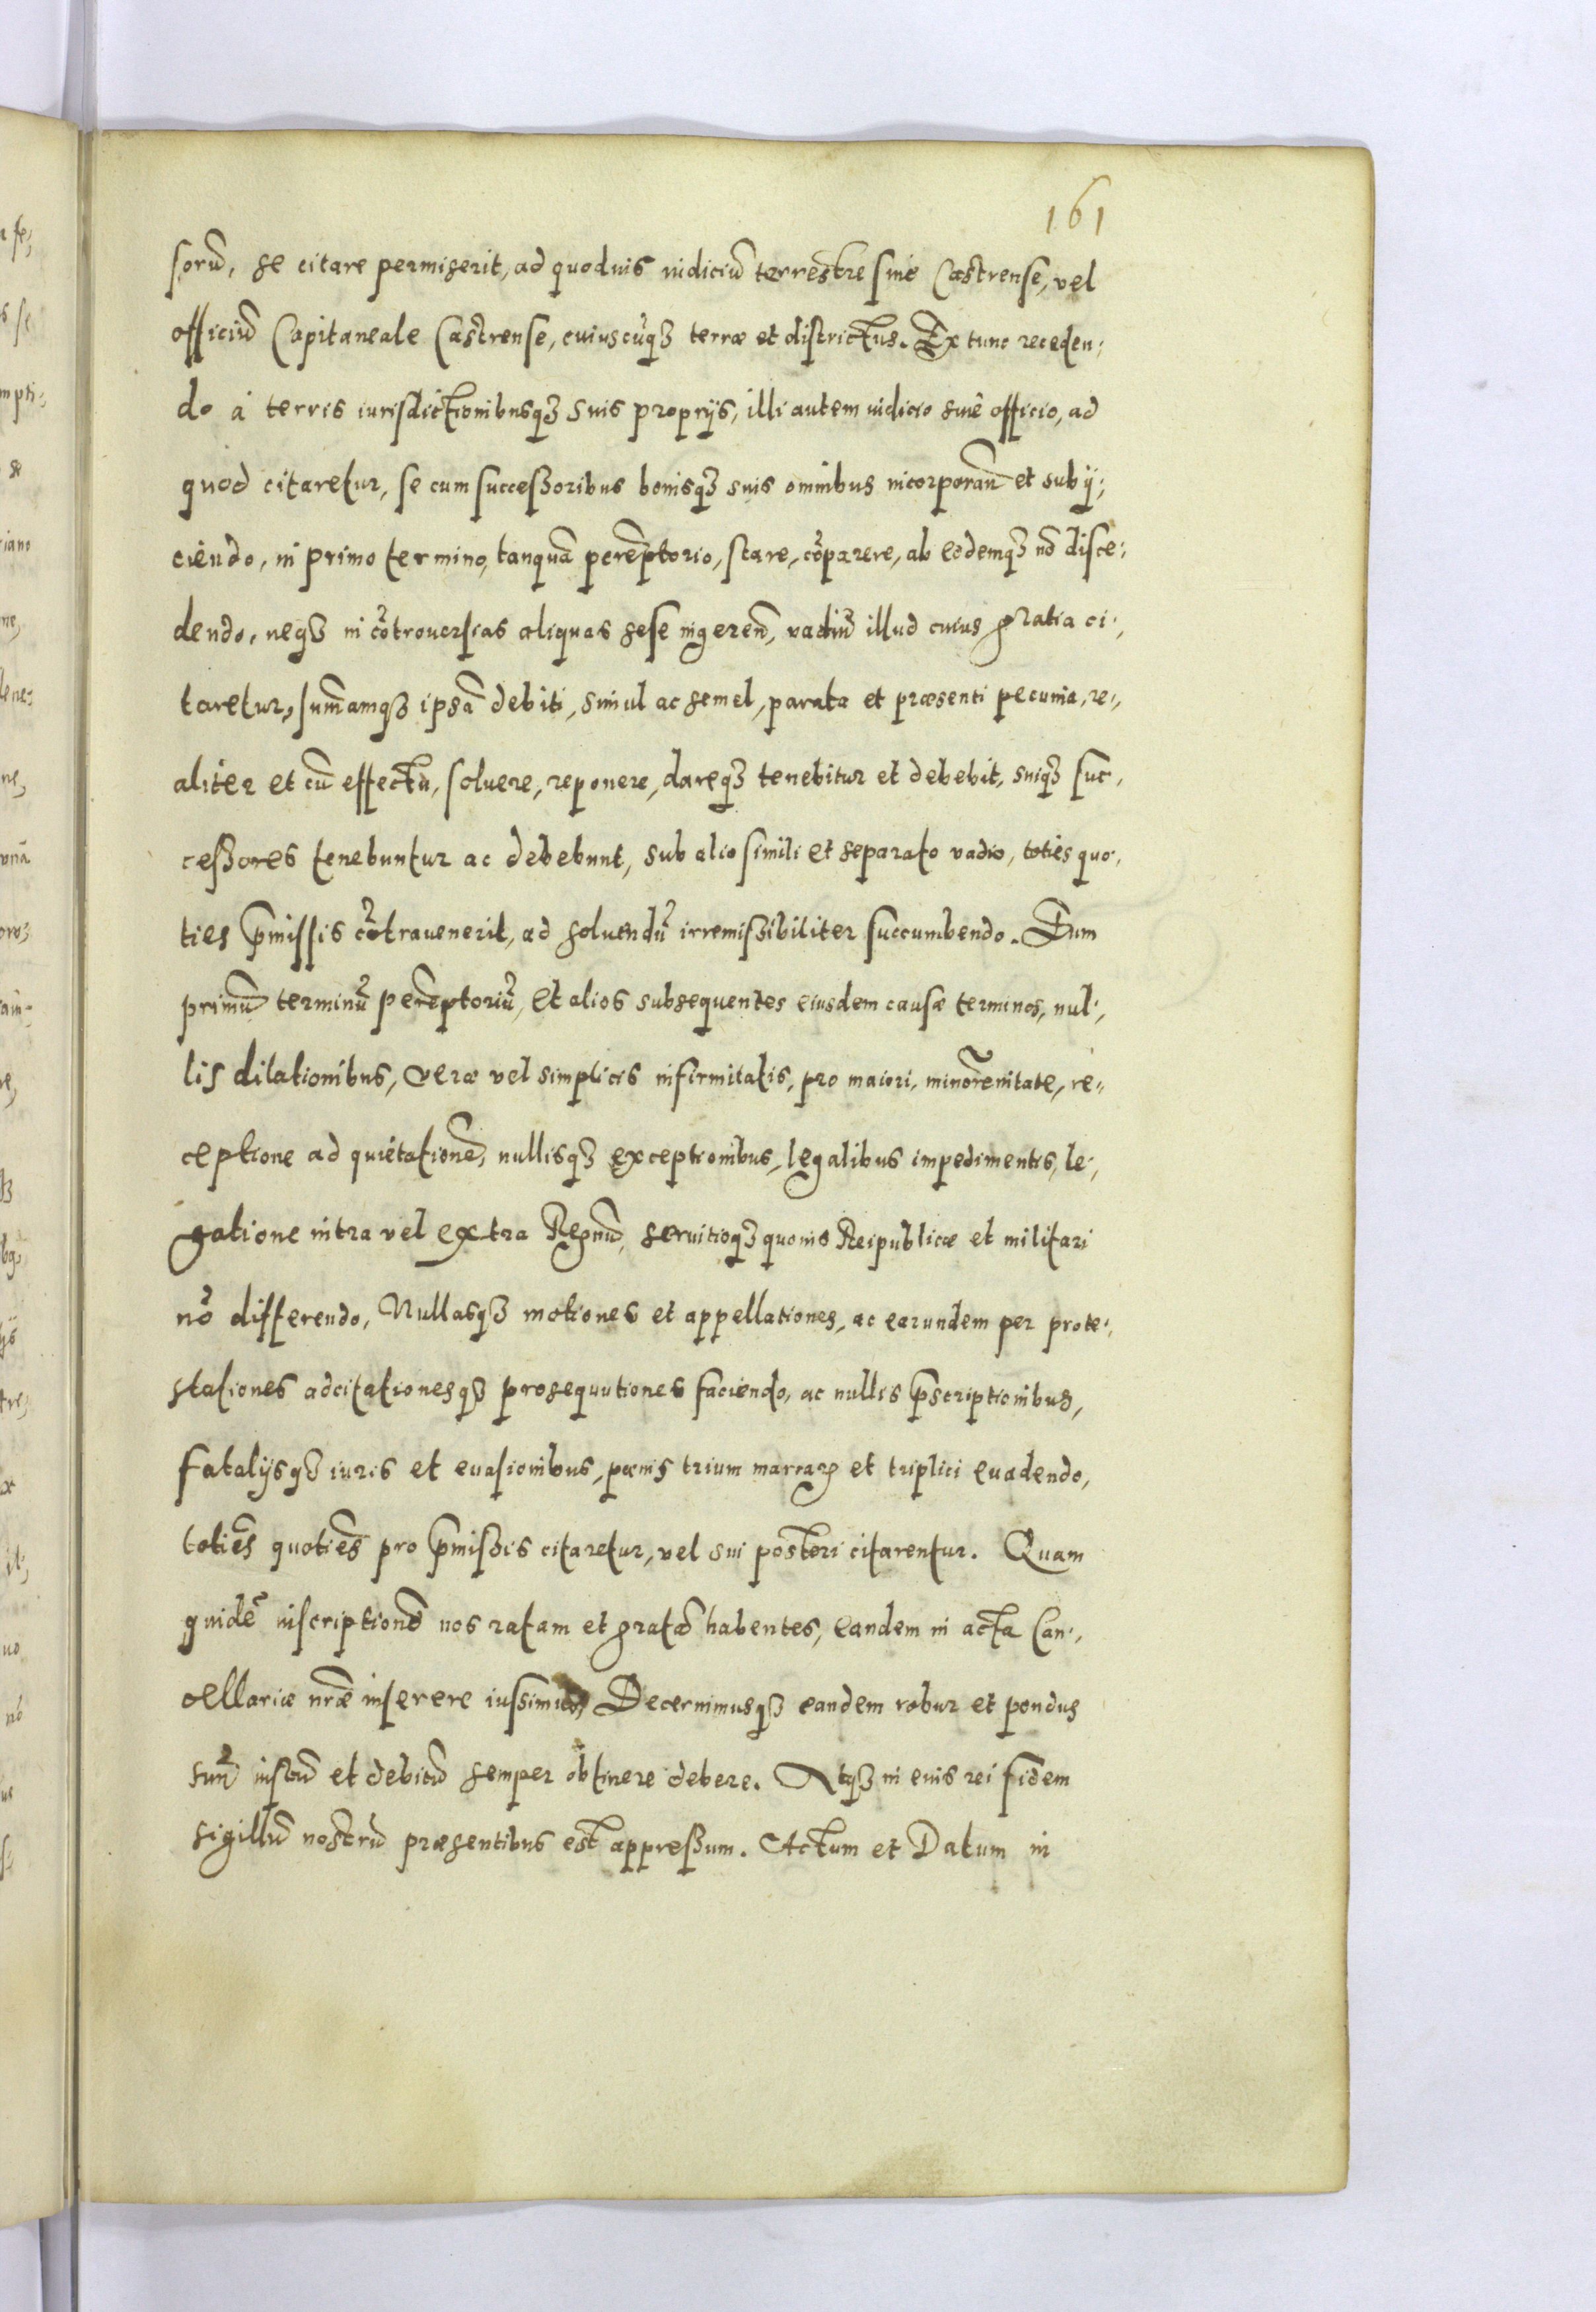 161
sorū, se citare permiserit, ad quoduis iudiciū terrestre siue Castrense, vel
officiū Capitaneale Castrense, cuiuscūqʒ terræ et districtus. Ex tunc receden:
do à terris iurisdictionibusqʒ suis proprijs, illi autem iudicio siue officio, ad
quod citaretur, se cum successoribus bonisqʒ suis omnibus incorporan̄ et subij:
ciendo, in primo termino, tanquā perēptorio, stare, cōparere, ab eodemqʒ nō disce:
dendo, neqʒ in cōtrouersias aliquas sese ingeren̄, vadiū illud cuius gratia ci:
taretur, sum̄amqʒ ipsā debiti, simul ac semel, parata et præsenti pecunia, re:
aliter et cū effectu, soluere, reponere, dareqʒ tenebitur et debebit, suiqʒ suc:
cessores tenebuntur ac debebunt, sub alio simili et separato vadio, toties quo:
ties p̄missis cōtrauenerit, ad soluendū irremissibiliter succumbendo. Eum
primū terminū perēptoriū, et alios subsequentes eiusdem causæ terminos, nul:
lis dilationibus, veræ vel simplicis infirmitatis, pro maiori, minorēnitate, re:
ceptione ad quietationē, nullisqʒ exceptionibus, legalibus impedimentis, le:
gatione intra vel extra Regnū, seruitioqʒ quouis Reipublicæ et militari
nō differendo, Nullasqʒ motiones et appellationes, ac earundem per prote:
stationes adcitationesqʒ prosequutiones faciendo, ac nullis p̄scriptionibus,
fatalijsqʒ iuris et euasionibus, pœnis trium marcarꝝ et triplici euadendo,
totiēs quotiēs pro p̄missis citaretur, vel sui posteri citarentur. Quam
quidē inscriptionē nos ratam et gratā habentes, eandem in acta Can:
cellariæ nr̄æ inserere iussimus, Decernimusqʒ eandem robur et pondus
suū iustū et debitū semper obtinere debere. Atqʒ in euis rei fidem
sigillū nostrū præsentibus est appressum. Actum et Datum in